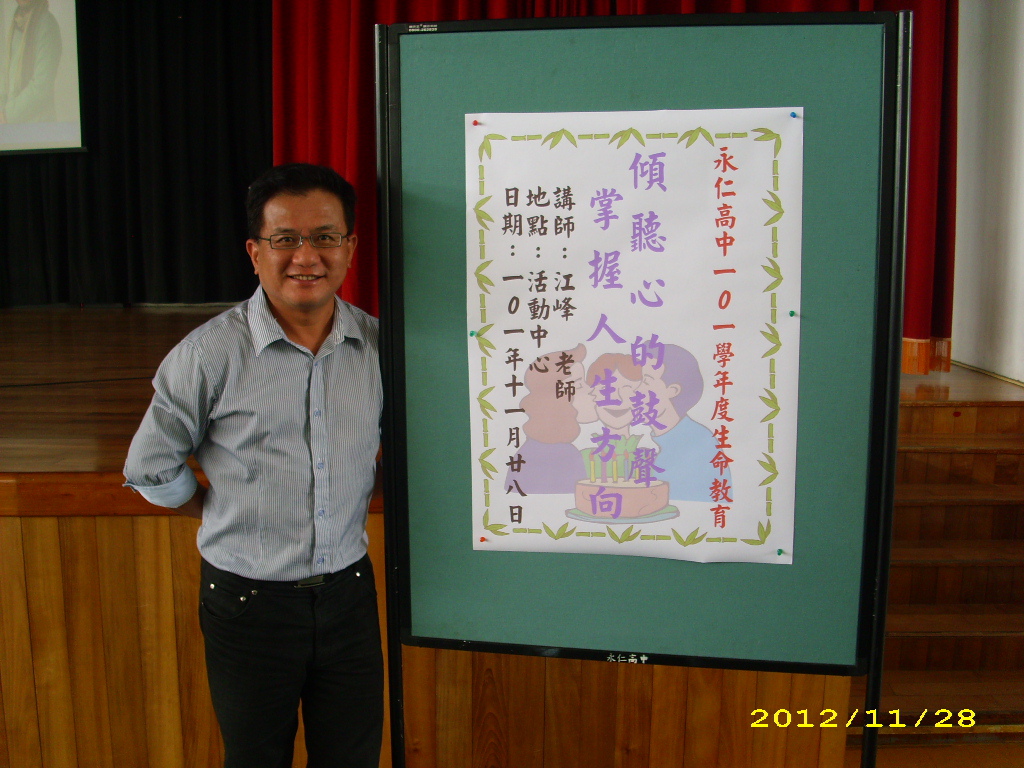 永仁高中一0一學年度生命教育
傾聽心的鼓聲
掌握人生方向
講師：江峰 老師
地點：活動中心
日期：一0一年十一月廿八日
永仁高中
2012/11/28